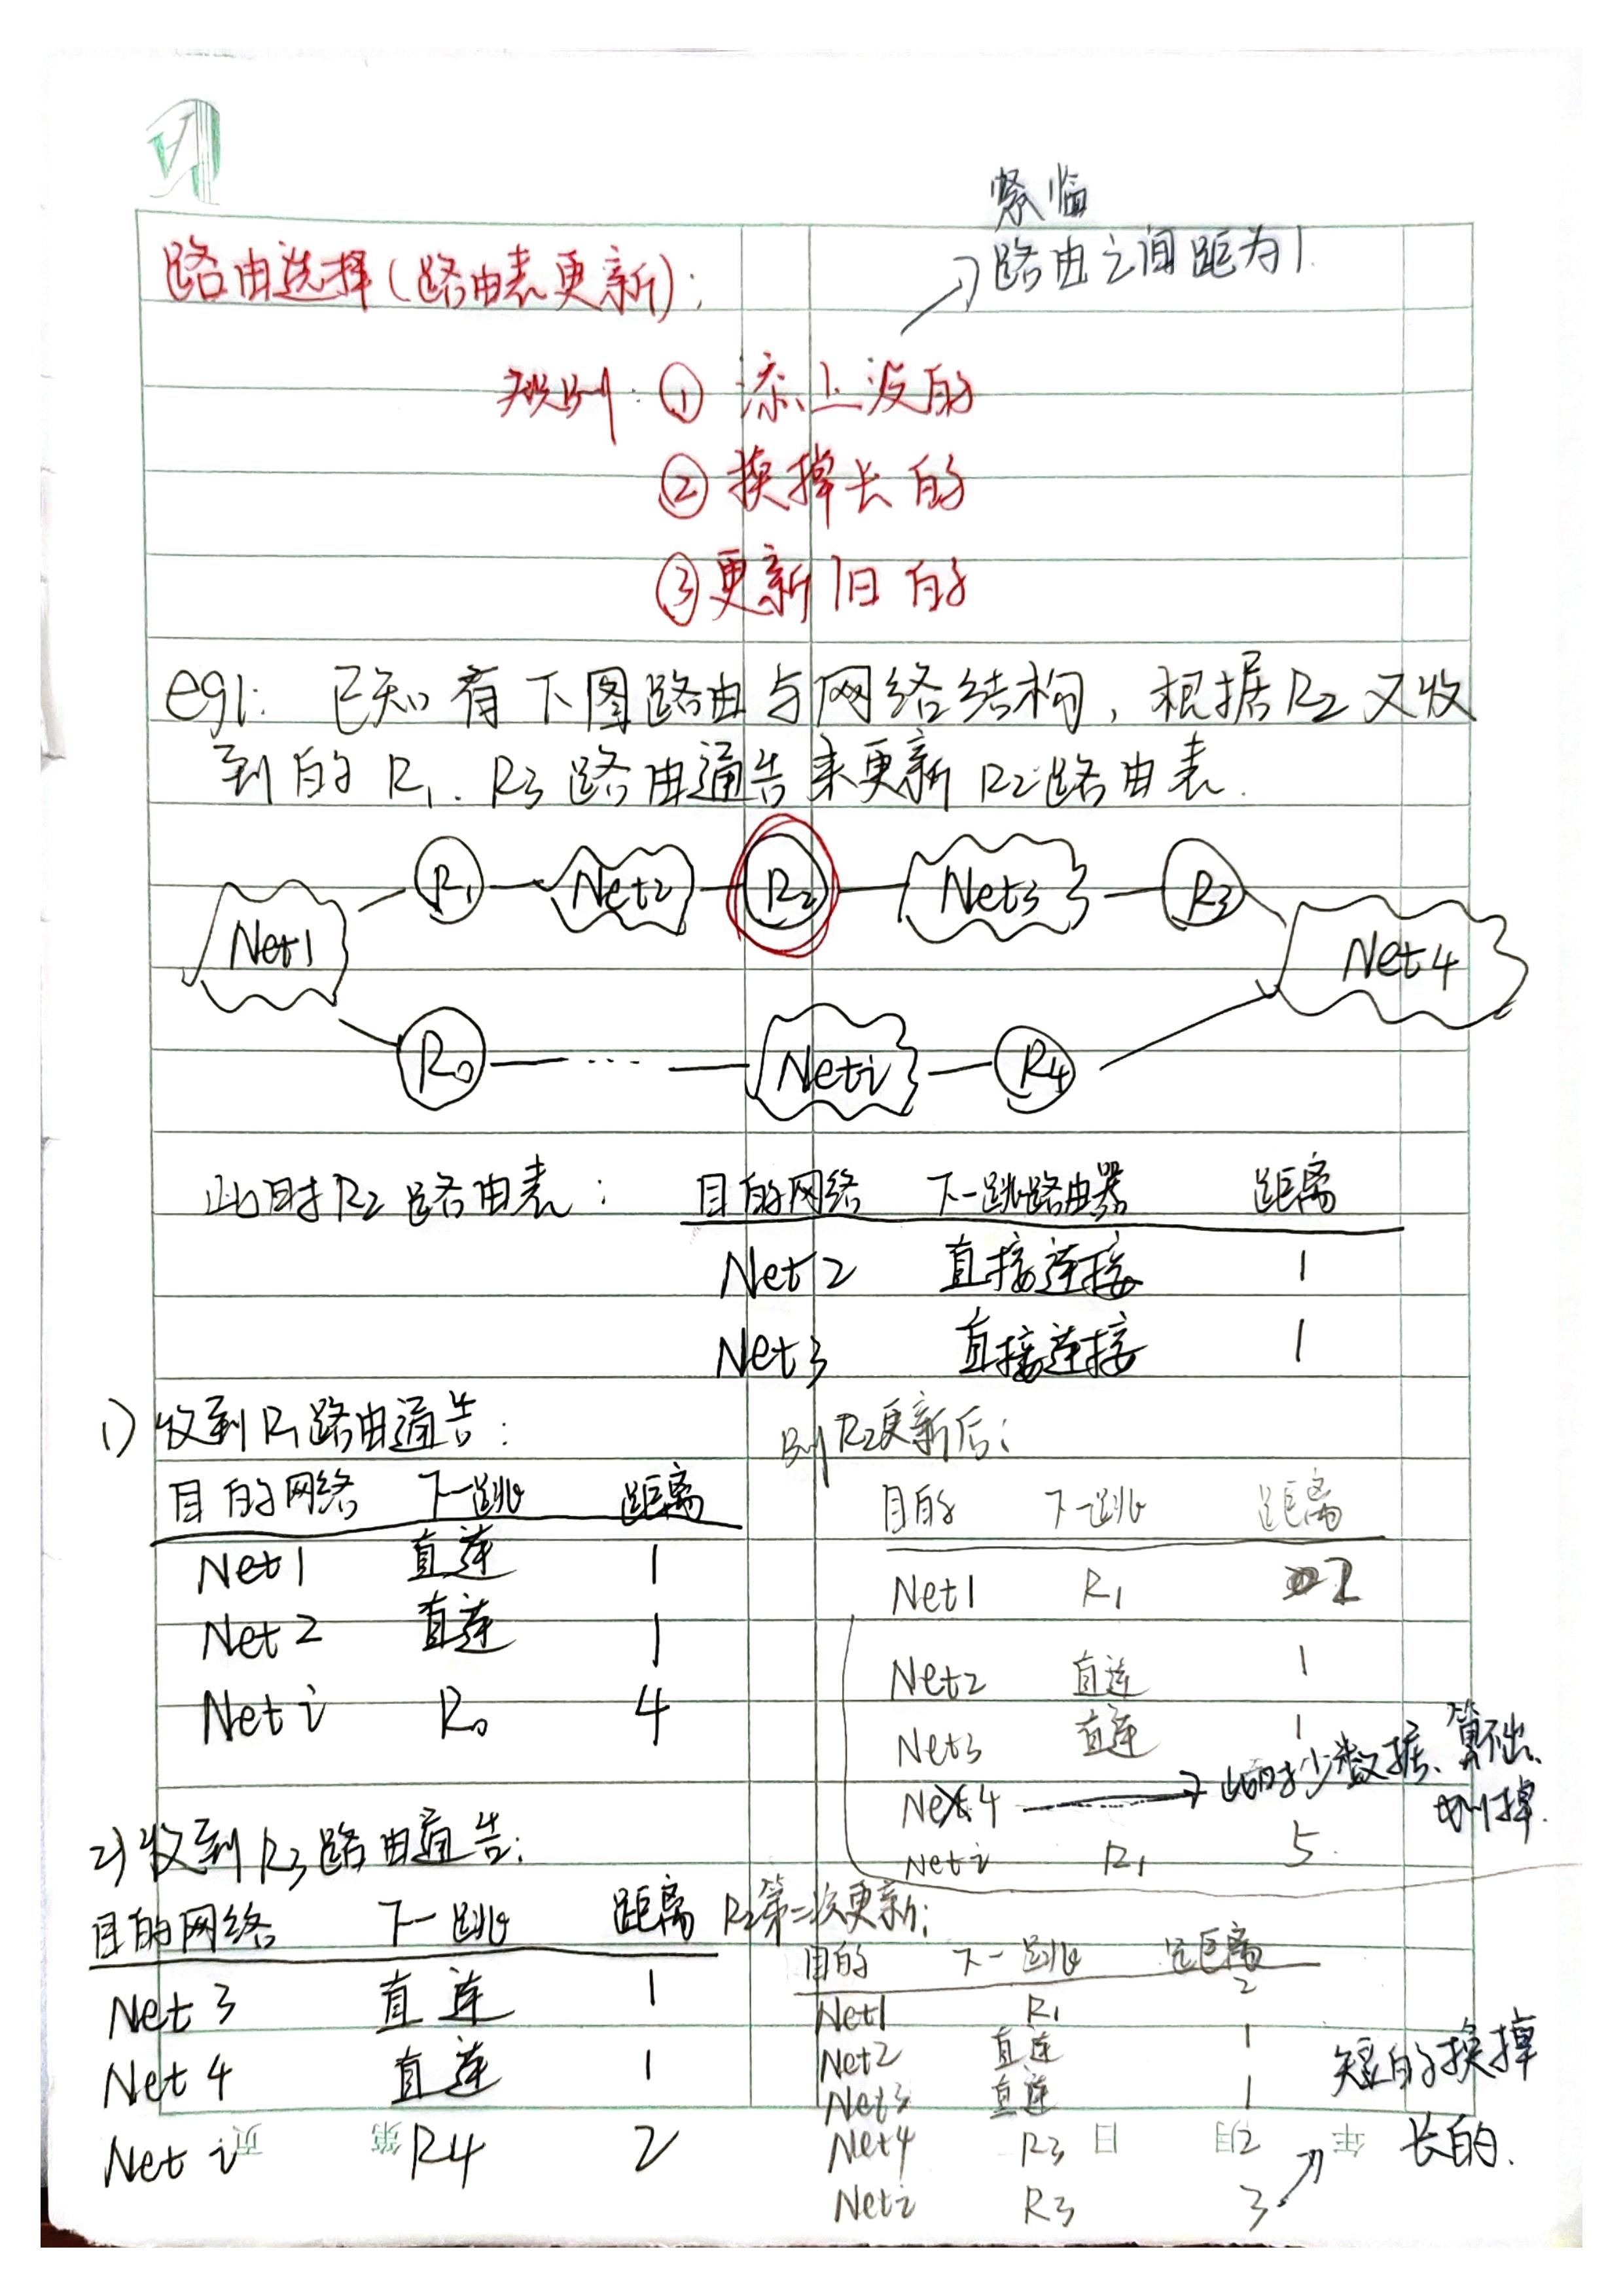 紧临
路由之间距为1.
路由选择(路由表更新):
规则: ① 添上没的
② 换掉长的
③ 更新旧的
eg1: 已知有下图路由与网络结构, 根据R2又收
到的R1. R3路由通告来更新R2路由表.
R1 Net2 R2 Net3 R3
Net1 Net4
R0 ... Neti R4
此时R2路由表: 目的网络 下一跳路由器 距离
Net2 直接连接 1
Net3 直接连接 1
1) 收到R1路由通告:
目的网络 下一跳 距离
Net1 直连 1
Net2 直连 1
Net i R0 4
则R2更新后:
目的 下一跳 距离
Net1 R1 2
Net2 直连 1
Net3 直连 1
Net4 此时少数据、算不出、
删掉.
Net i R1 5
2) 收到R3路由通告:
目的网络 下一跳 距离
Net 3 直连 1
Net 4 直连 1
Net i R4 2
R2第二次更新:
目的 下一跳 距离
Net1 R1 2
Net2 直连 1
Net3 直连 1
Net4 R3 2
Neti R3 3
短的换掉
长的.
第 页
年 月 日